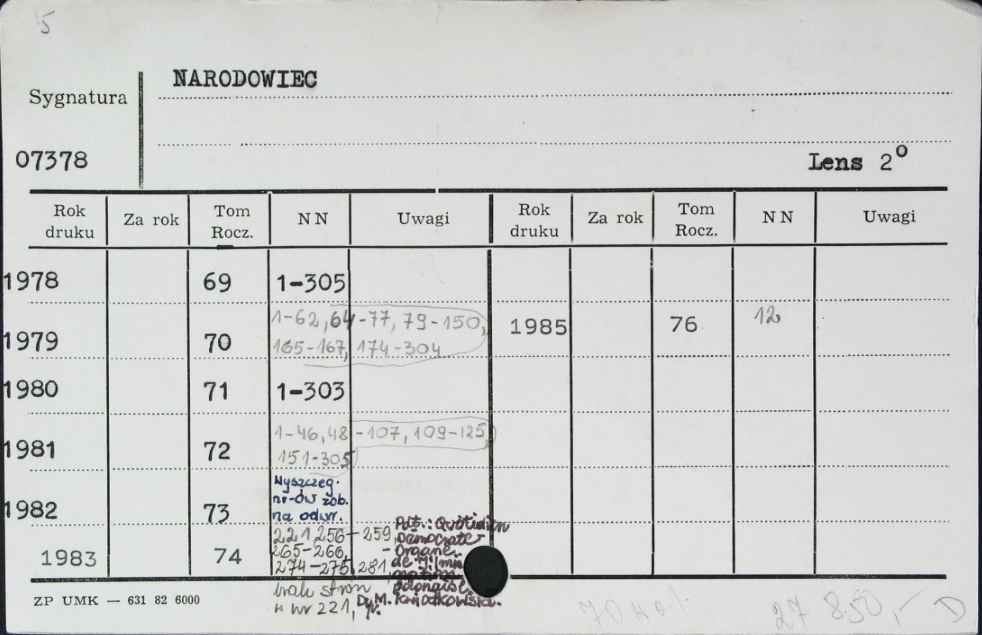 5
NARODOWIEC
Sygnatura
07378
Lens 2º
Rok druku Za rok Tom Rocz. NN Uwagi Rok druku Za rok Tom Rocz. NN Uwagi
1978 69 1-305
1979 70 1-62, 64-77, 79-150,
165-167, 174-304
1985 76 12
1980 71 1-303
1981 72 1-46, 48-107, 109-125
151-305
1982 73 Wyszczeg.
nr-ów zob.
na odwr.
1983 74 221, 256-259,
265-266,
274-275, 281,
brak stron
w nr 221,
Podt.: Quotidien
Democrate
- Organe
de
Dyr. M. Kwiatkowska.
ZP UMK — 631 82 6000
27 850,- D